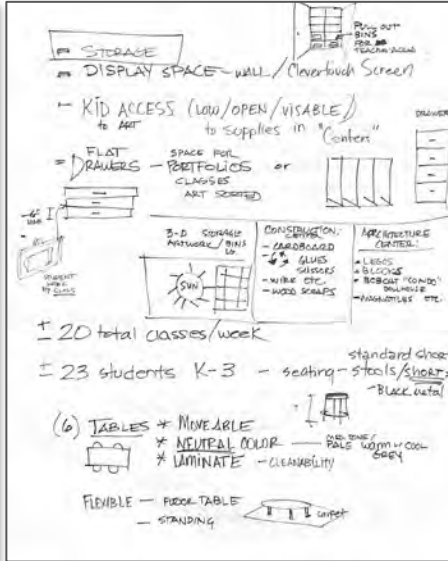 STORAGE
PULL OUT
BINS
FOR
DISPLAY SPACE - WALL / Clevertouch Screen
KID ACCESS (LOW/OPEN/VISABLE)
to ART
to supplies in "Centers"
DRAWERS
FLAT
DRAWERS -
SPACE FOR
PORTFOLIOS or
CLASSES
ART SORTED
ART
STUDENT
WORK
BY CLASS
3-D STORAGE
ARTWORK / BINS
LG.
SUN
CONSTRUCTION
CENTER:
- CARDBOARD
- GLUES
SCISSORS
- WIRE ETC.
- WOOD SCRAPS
ARCHITECTURE
CENTER:
LEGOS
BLOCKS
BOBCAT "CONDO"
DOLLHOUSE
MAGNATILES ETC.
± 20 total classes/week
± 23 students K-3 - seating - stools/short
standard short
- Black metal
(6) TABLES * MOVEABLE
* NEUTRAL COLOR - PALE WARM or COOL
GREY
* LAMINATE - CLEANABILITY
FLEXIBLE - FLOOR TABLE
- STANDING
carpet